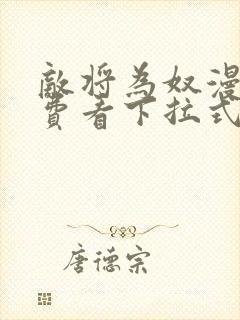 敵將為奴漫
費看下拉式
唐德宗